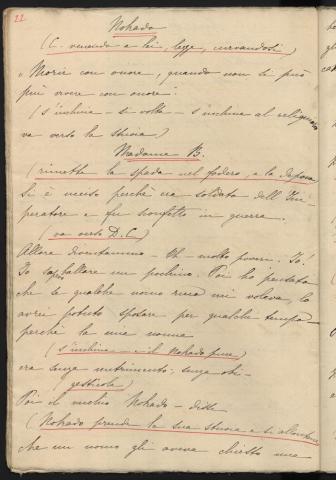 22
Nohado
(C. venendo a lei, legge, curvandosi)
"Morir con onore, quando non si può
più vivere con onore".
(s'inchina - si volta - s'inchina al reliquario
va verso la stuoia)
Madama B.
(rimette la spada nel fodero, e la depone
Si è ucciso perchè era soldato dell'Im-
peratore e fu sconfitto in guerra.
(va verso D.C.)
Allora diventammo - Eh - molto poveri. Io!
Io so ballare un pochino. Poi ho pensato
che se qualche uomo ricco mi voleva, lo
avrei potuto sposare per qualche tempo -
perchè la mia nonna
(s'inchina - e il Nohado pure)
era senza nutrimento; senza obi -
(gesticola)
Poi il vecchio Nohado - disse
(Nohado prende la sua stuoia e si allontana
che un uomo gli aveva chiesto una